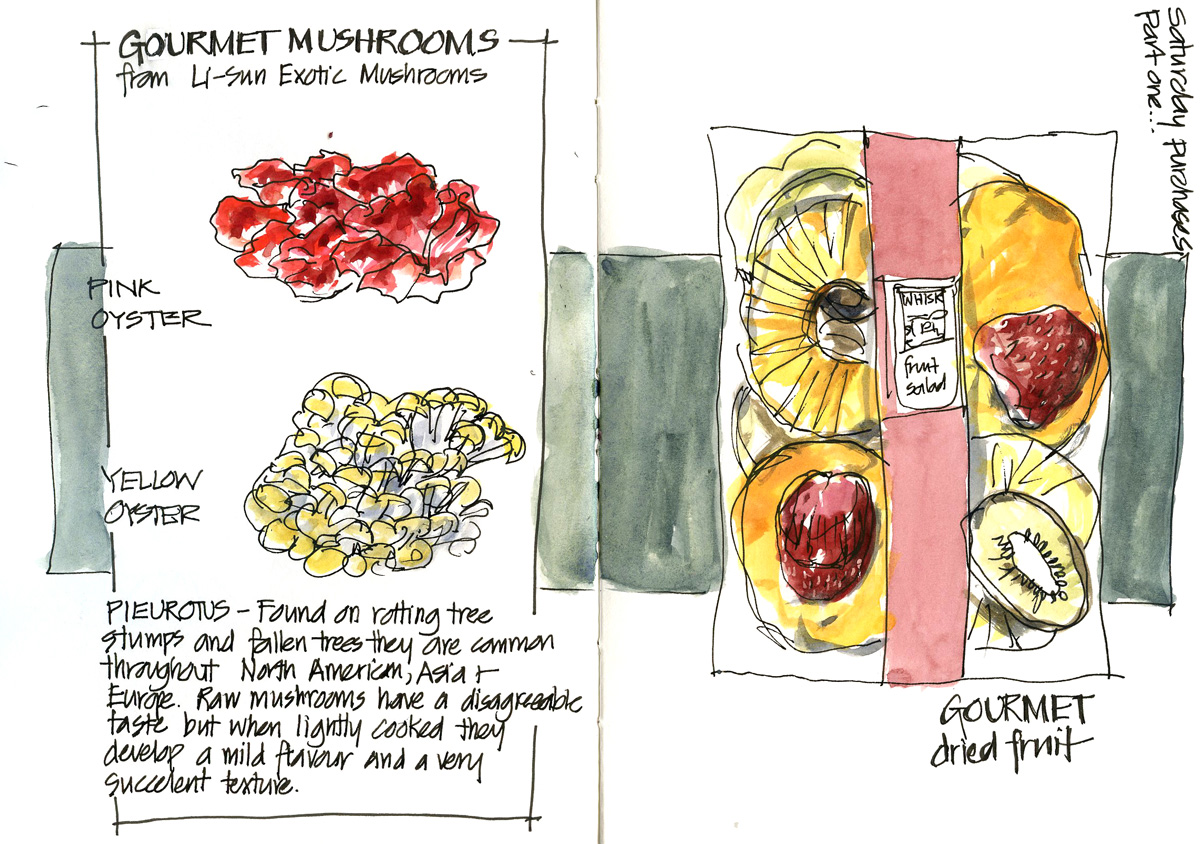 GOURMET MUSHROOMS
from Li-Sun Exotic Mushrooms
PINK
OYSTER
YELLOW
OYSTER
PLEUROTUS – Found on rotting tree
stumps and fallen trees they are common
throughout North American, Asia +
Europe. Raw mushrooms have a disagreeable
taste but when lightly cooked they
develop a mild flavour and a very
succelent texture.
Saturday purchases
Part one...
WHISK
fruit
salad
GOURMET
dried fruit